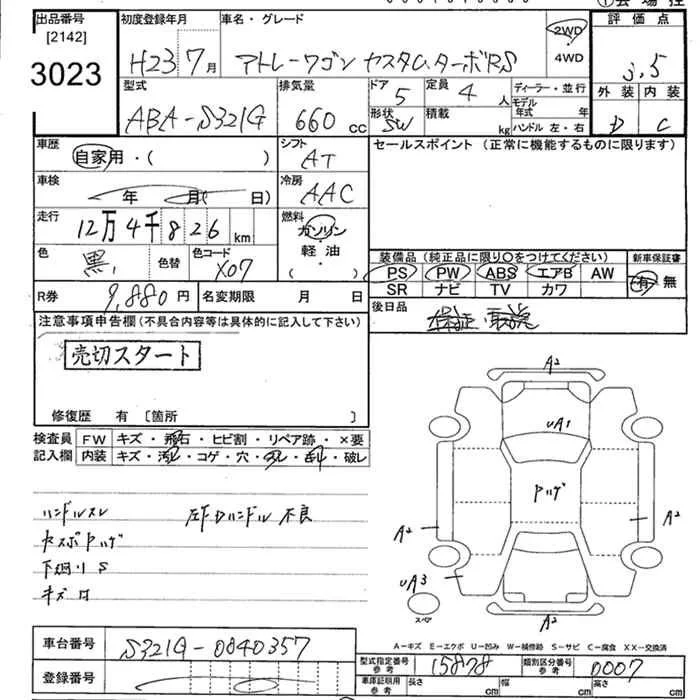 ①会場控
出品番号
[2142]
3023
初度登録年月
H23 7月
車名・グレード
アトレーワゴン カスタム.ターボRS
2WD
4WD
評価点
3.5
外装 内装
D C
型式
ABA-S321G
排気量
660 cc
ドア
5
定員
4 人
形状
SW
積載
kg
ディーラー・並行
モデル年式 年
ハンドル 左・右
車歴
自家用・( )
シフト
AT
車検
年 月( 日)
冷房
AAC
走行
12万4千826km
燃料
ガソリン
軽・油
( )
色
黒
色替
色コード
X07
R券
9,880円
名変期限 月 日
セールスポイント (正常に機能するものに限ります)
装備品 (純正品に限り○をつけてください)
PS PW ABS エアB AW
SR ナビ TV カワ
新車保証書
有・無
後日品
保証・取説
注意事項申告欄(不具合内容等は具体的に記入して下さい)
売切スタート
修復歴 有 [箇所 ]
検査員記入欄
FW キズ・飛石・ヒビ割・リペア跡・×要
内装 キズ・汚レ・コゲ・穴・スレ・破レ
ハンドルスレ 左FDハンドル不良
下廻りS
A2
UA1
Pハゲ
A2
A2
UA3
スペア
A2
A-キズ E-エクボ U-凹み W-補修跡 S-サビ C-腐食 XX-交換済
車台番号
S321G-0840357
登録番号
型式指定番号 参考
15878
類別区分番号 参考
0007
車庫証明用 参考
長さ cm
幅 cm
高さ cm